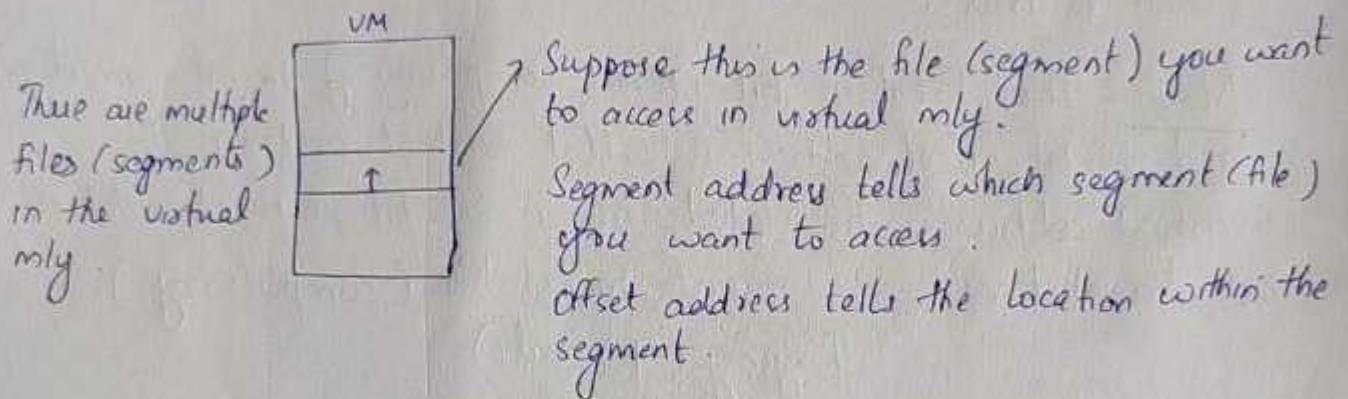 VM
There are multiple
files (segments)
in the virtual
mly.
Suppose this is the file (segment) you want
to access in virtual mly.
Segment address tells which segment (file)
you want to access.
Offset address tells the location within the
segment.